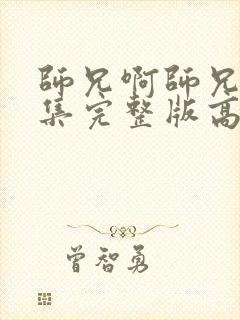 師兄啊師兄
集完整版高
曾智勇